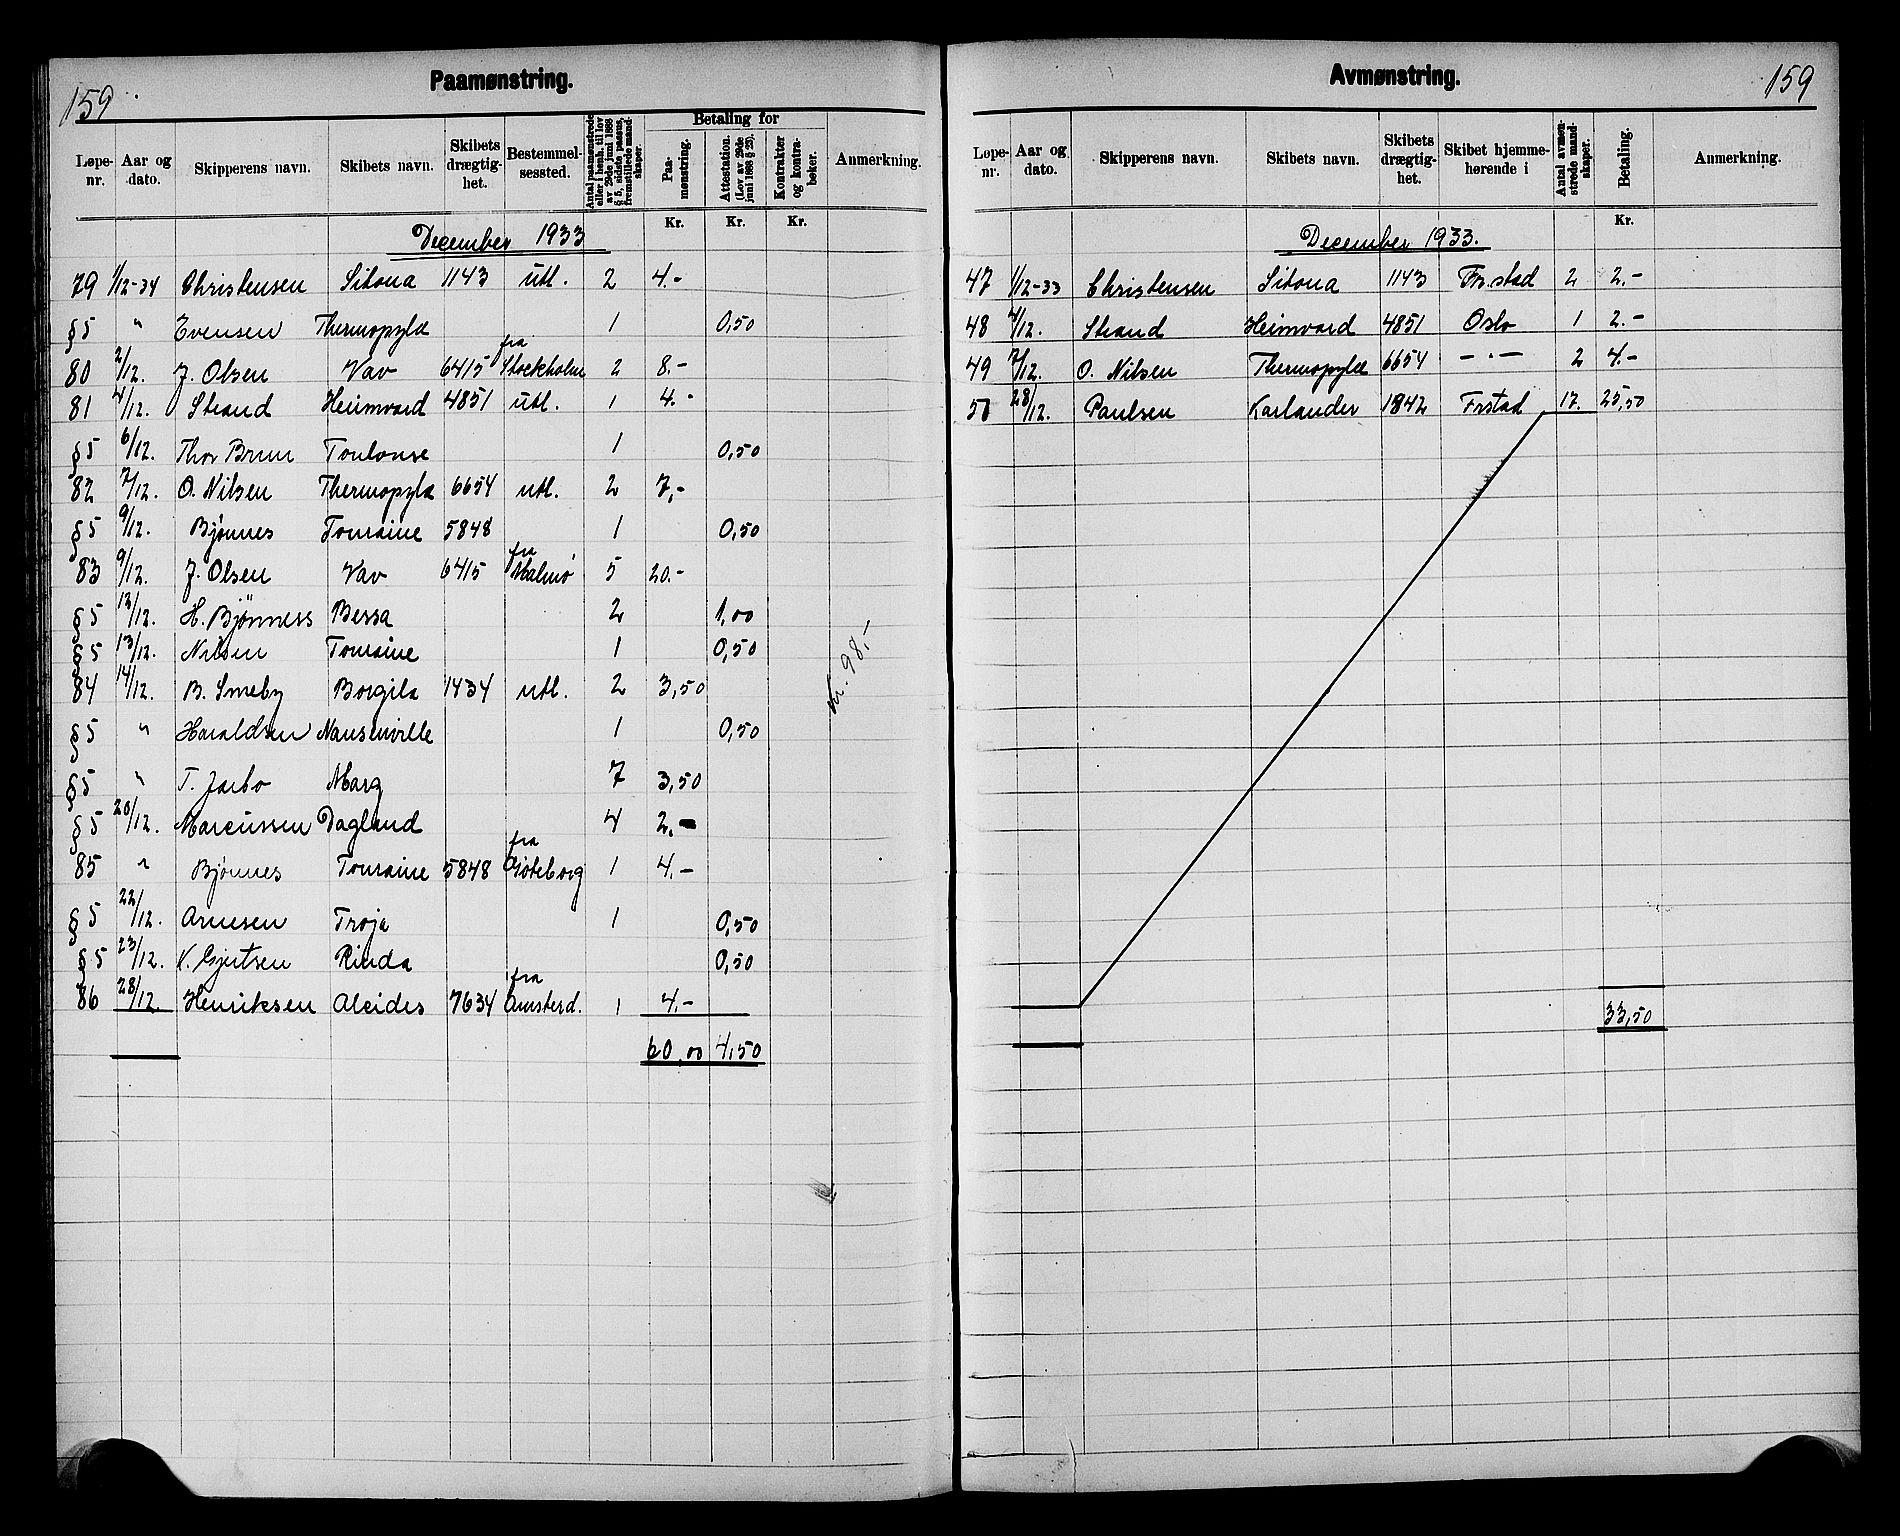 159
Paamønstring.
Løpe-nr. Aar og dato. Skipperens navn. Skibets navn. Skibets drægtig-het. Bestemmel-sessted. Antal paamønstrede eller i henh. til lov av 29de juni 1888 § 5, sidste passus, fremstillede mand-skaper. Betaling for Paa-mønstring. Attestation. (Lov av 29de juni 1888 § 23). Kontrakter og kontra-bøker. Anmerkning.
Kr. Kr. Kr.
December 1933
79 1/12-34 Christensen Sitona 1143 utl. 2 4.-
§5 " Evensen Thermopylæ 1 0,50
80 2/12. J. Olsen Vav 6415 fra Stockholm 2 8.-
81 4/12. Strand Heimvard 4851 utl. 1 4.-
§5 6/12. Thor Brun Toulouse 1 0,50
82 7/12. O. Nilsen Thermopylæ 6654 utl. 2 7,-
§5 9/12. Bjønnes Touraine 5848 1 0,50
83 9/12. J. Olsen Vav 6415 fra Malmø 5 20.-
§5 13/12. H. Bjønness Bessa 2 1,00
§5 13/12. Nilsen Touraine 1 0,50
84 14/12. B. Smeby Borgila 1434 utl. 2 3,50
§5 " Haraldsen Nansenville 1 0,50
§5 " T. Jarbo Marg 7 3,50
§5 20/12. Marcussen Dagland 4 2.-
85 " Bjønnes Touraine 5848 fra Gøteborg 1 4.-
§5 22/12. Arnesen Troja 1 0,50
§5 23/12. K. Gjertsen Rinda 0,50
86 28/12. Henriksen Alcides 7634 fra Amsterd. 1 4.-
60,00 4,50
Kr. 98.-
Avmønstring.
159
Løpe-nr. Aar og dato. Skipperens navn. Skibets navn. Skibets drægtig-het. Skibet hjemme-hørende i Antal avmøn-strede mand-skaper. Betaling. Anmerkning.
Kr.
December 1933.
47 1/12-33 Christensen Sitona 1143 Fr.stad 2 2.-
48 4/12. Strand Heimvard 4851 Oslo 1 2.-
49 7/12. O. Nilsen Thermopylæ 6654 -"- 2 4.-
50 28/12. Paulsen Karlander 1842 Frstad 17. 25,50
33,50